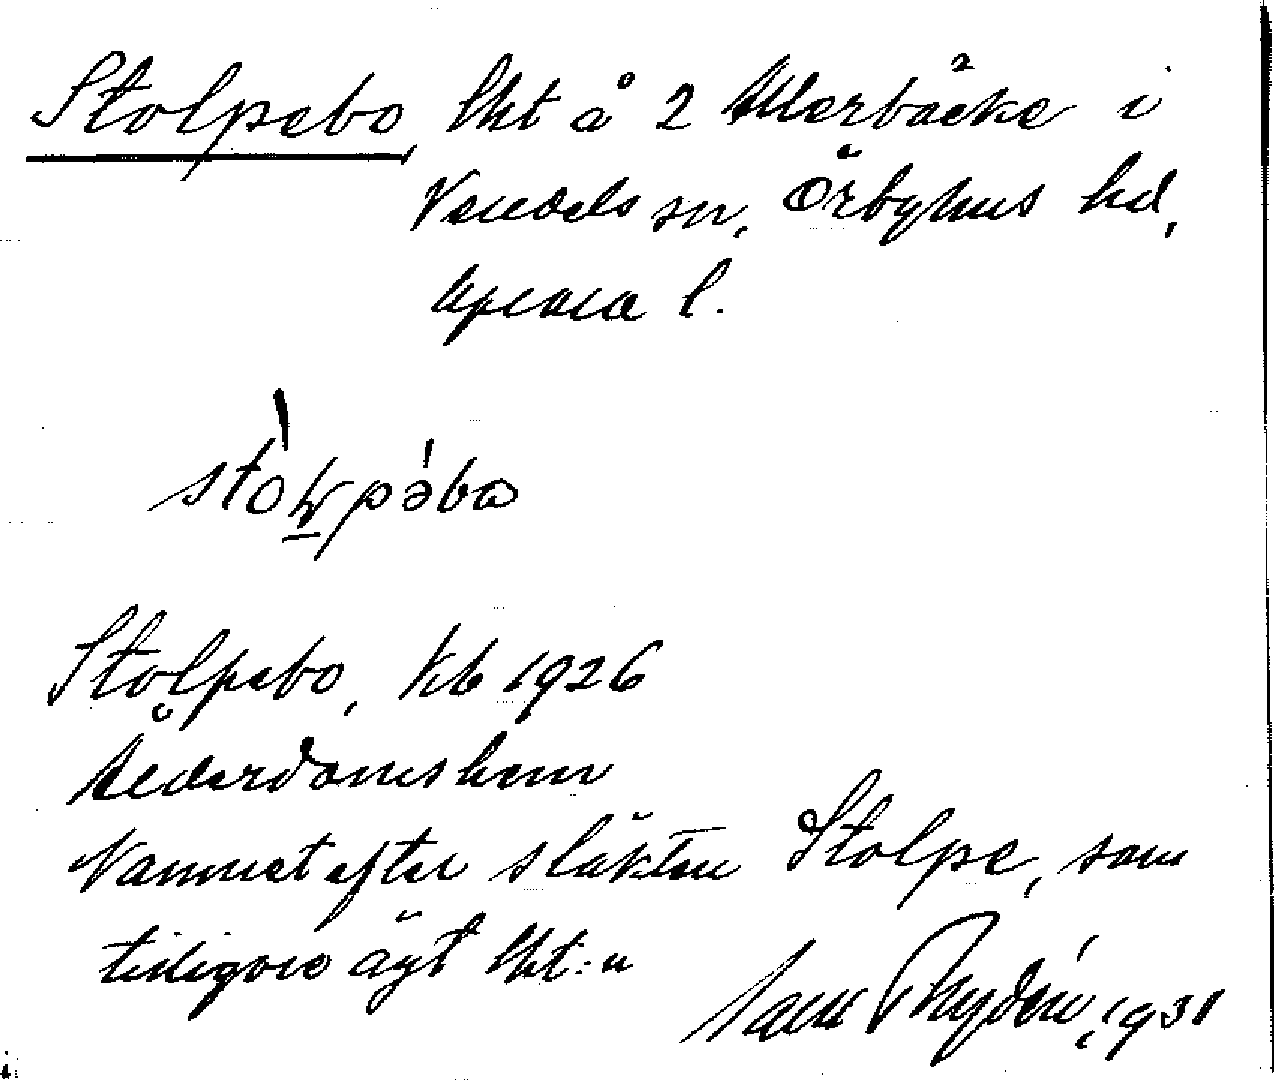 Stolpebo, lht å 2 Ullerbäcke i
Vendels sn, Örbyhus hd,
Uppsala l.
Stolpebo, kb 1926
Ålderdomshem
Namnet efter släkten Stolpe, som
tidigare ägt lht:n
Rydén, 1931